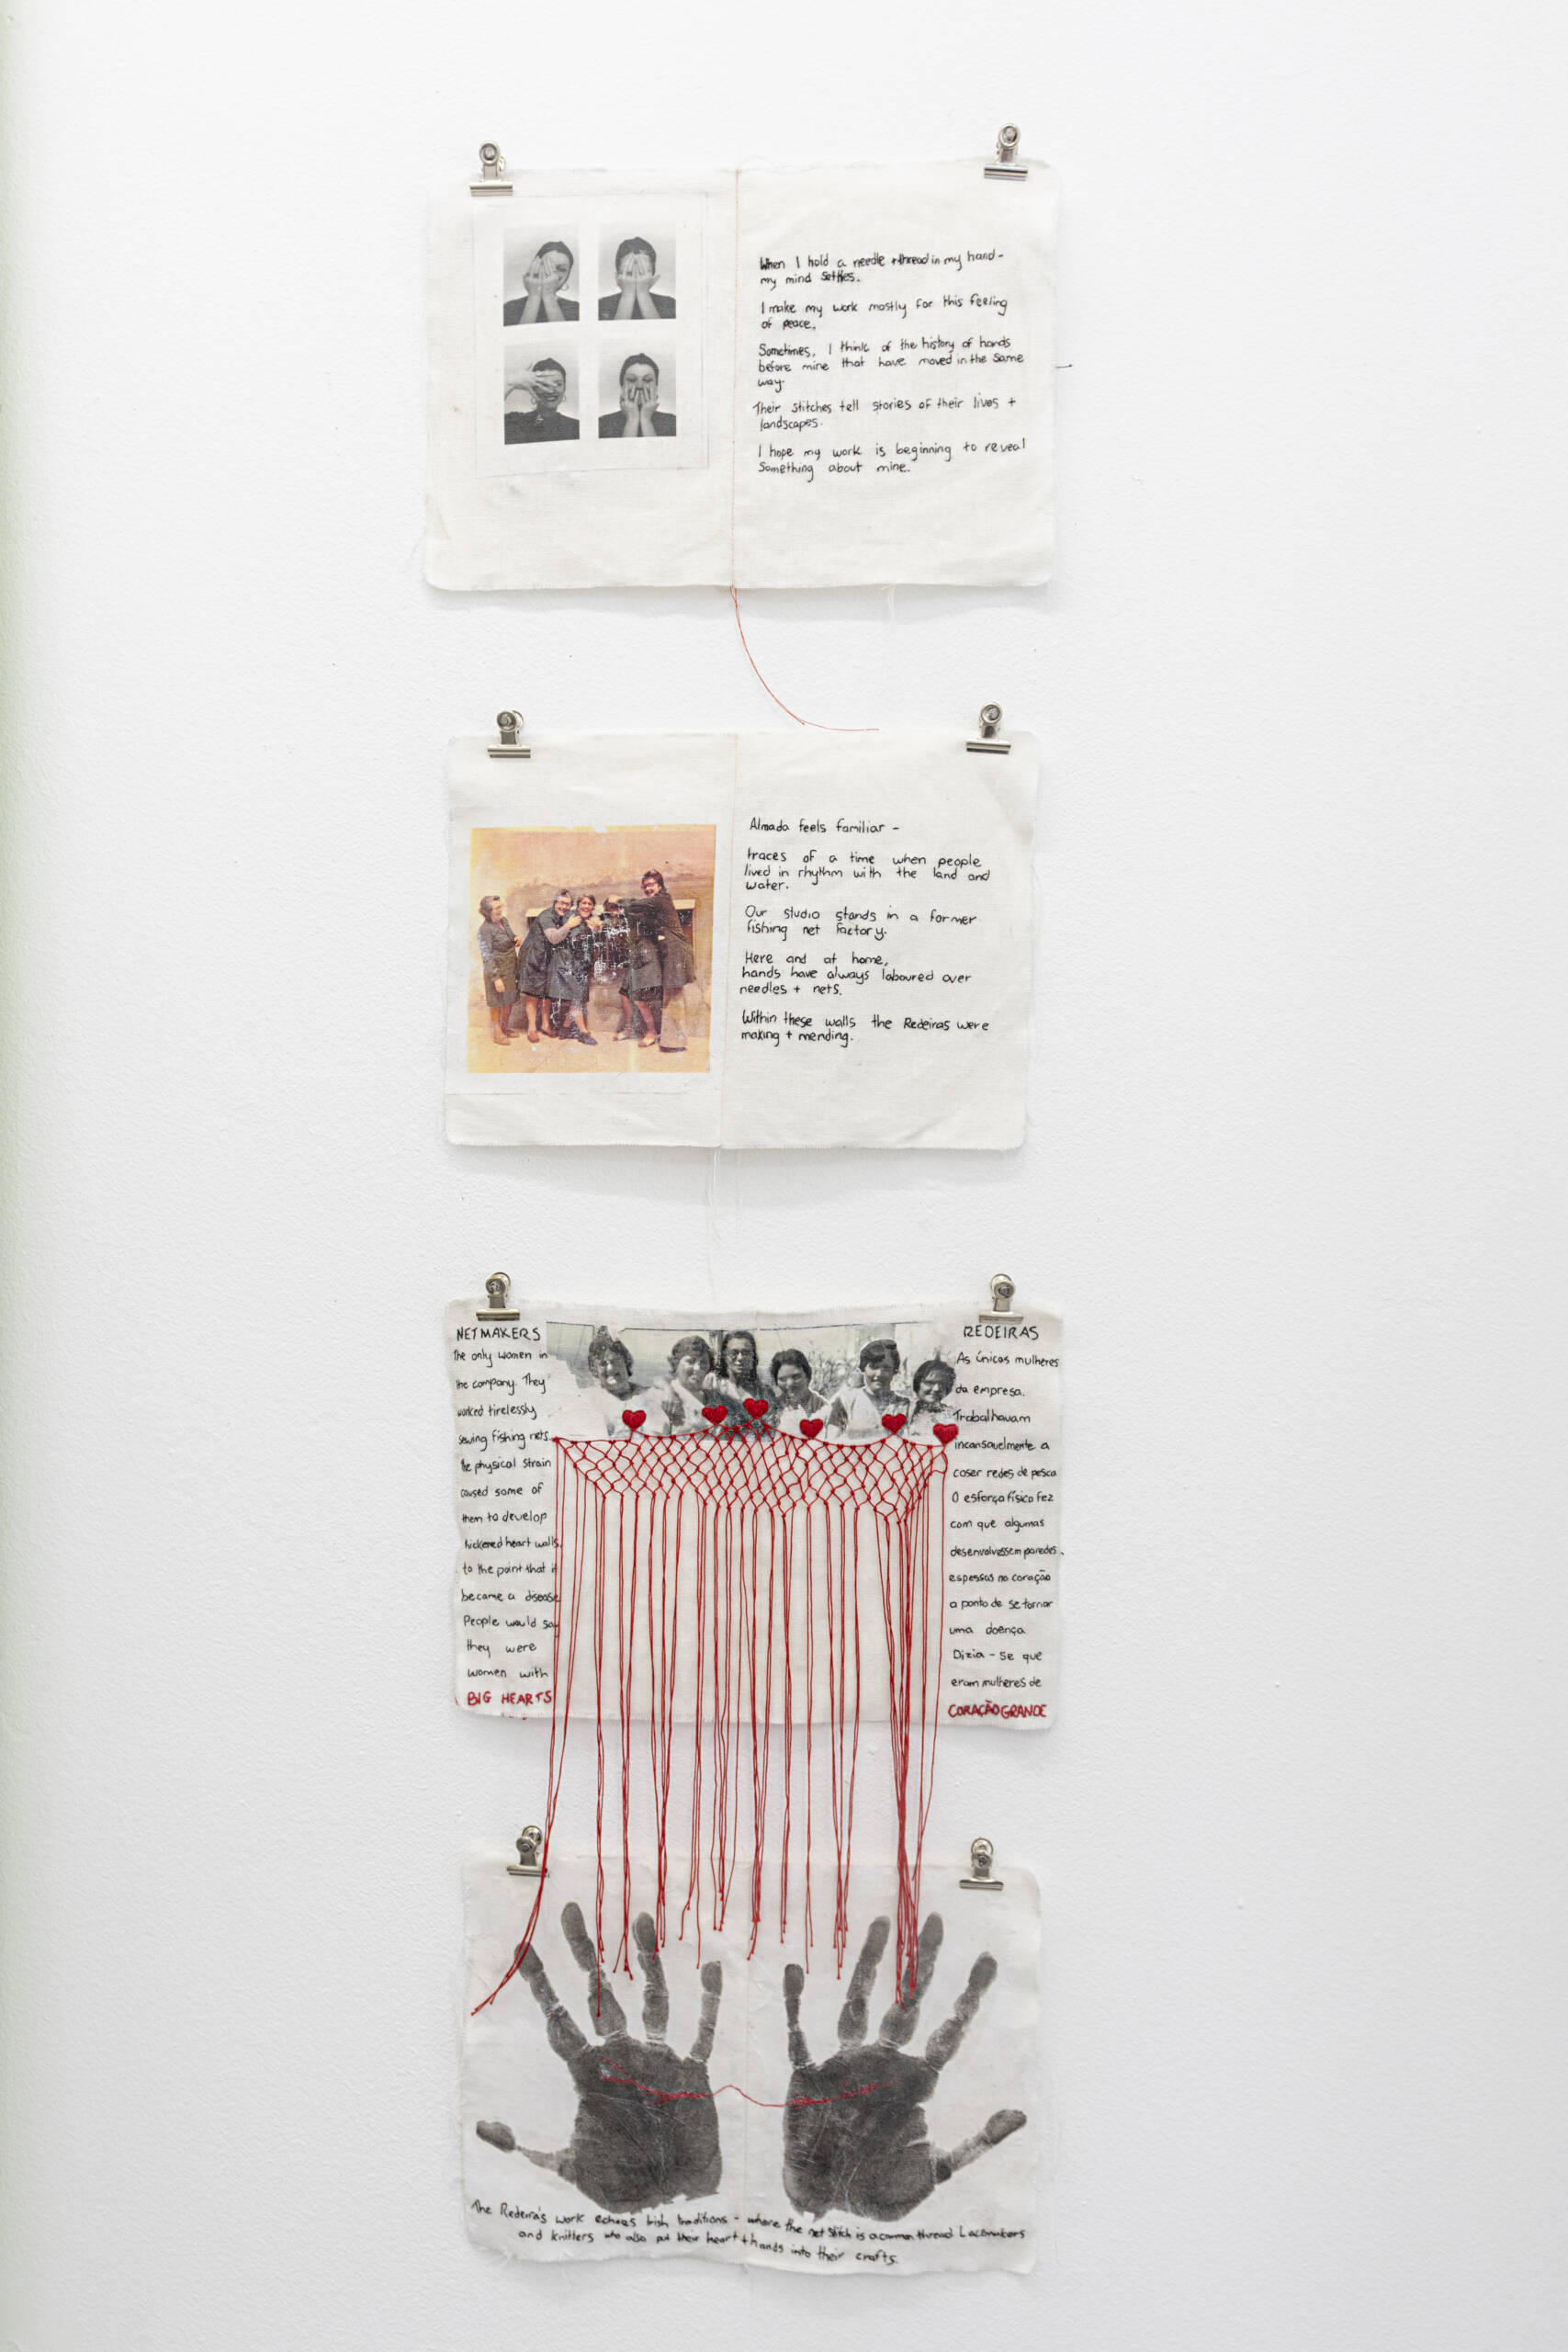 When I hold a needle + thread in my hand -
my mind settles.
I make my work mostly for this feeling
of peace.
Sometimes, I think of the history of hands
before mine that have moved in the same
way.
Their stitches tell stories of their lives +
landscapes.
I hope my work is beginning to reveal
something about mine.
Almada feels familiar -
traces of a time when people
lived in rhythm with the land and
water.
Our studio stands in a former
fishing net factory.
Here and at home,
hands have always laboured over
needles + nets.
Within these walls the Redeiras were
making + mending.
NETMAKERS
The only women in
the company. They
worked tirelessly
sewing fishing nets.
The physical strain
caused some of
them to develop
thickened heart walls
to the point that it
became a disease
People would say
they were
women with
BIG HEARTS
REDEIRAS
As únicas mulheres
da empresa.
Trabalhavam
incansavelmente a
coser redes de pesca
O esforço físico fez
com que algumas
desenvolvessem paredes
espessas no coração
a ponto de se tornar
uma doença
Dizia-se que
eram mulheres de
CORAÇÃO GRANDE
The Redeira's work echoes Irish traditions - where the net stitch is a common thread Lacemakers
and knitters who also put their heart + hands into their crafts.